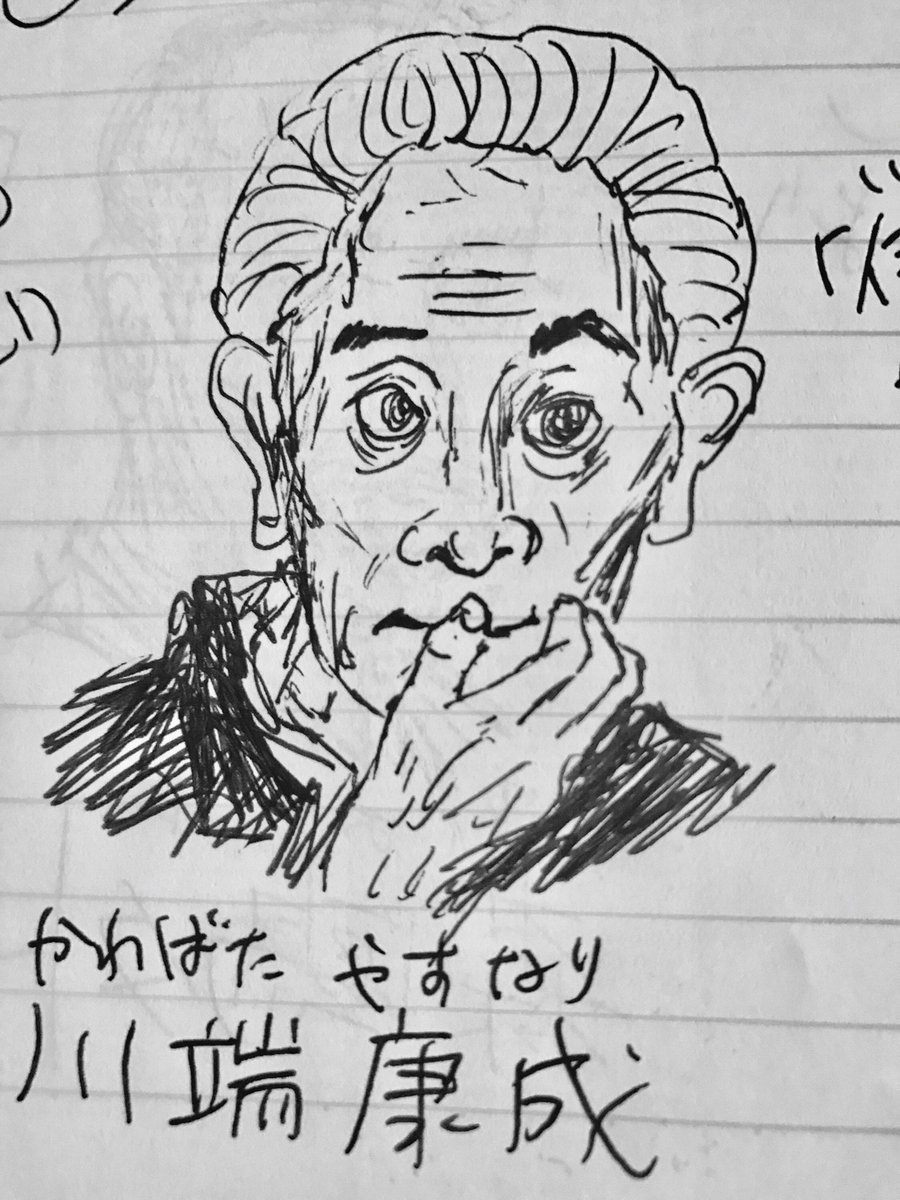 かわばた やすなり
川端 康成